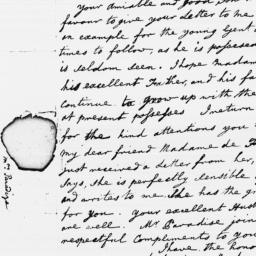 your amiable and good Son
favour to give your letter to me
an example for the young Gent
times to follow, as he is possessed
is seldom seen. I hope Madam
his excellent Father, and his fa
continue to grow up with the
at present possesses I return
for the kind attentions you
my dear friend Madame de
just received a letter from her,
Says, she is perfectly sensible
and writes to me she has the gr
for you. your excellent Husb
are well. Mr Paradise join
respectful Compliments to you
I have the hono
Mrs Paradise